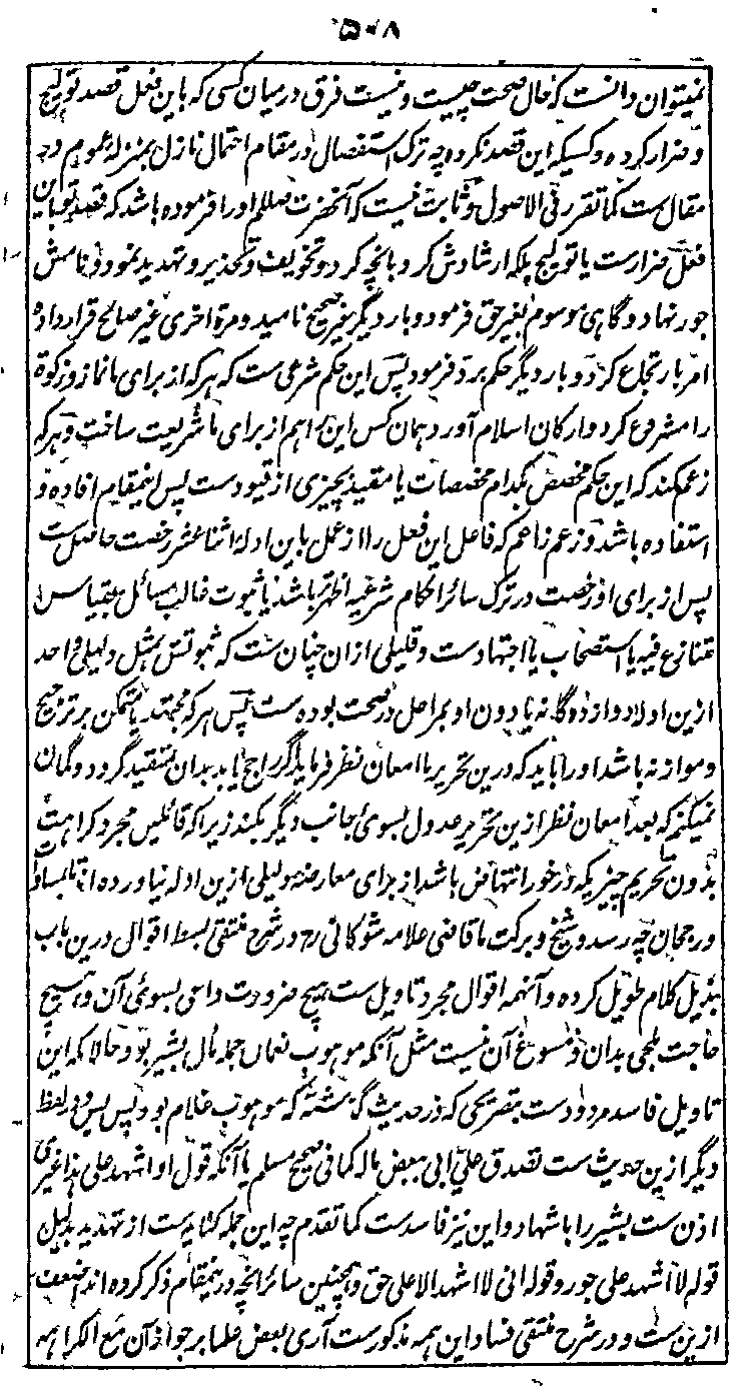 ۵۰۸
نمیتوان دانست که حال صحت چیست و نیست فرق درمیان کسی که باین فعل قصد تولیج
و ضرار کرده و کسیکه این قصد نکرده چه ترک استفصال در مقام احتمال نازل بمنزلهٔ عموم در
مقال ست کما تقرر فی الاصول و ثابت نیست که آنحضرت صللم او را فرموده باشد که قصد تو باین
فعل ضرارست یا تولیج بلکه ارشادش کرد بانچه کرد و تخویف و تحذیر و تهدید نمود و نامش
جور نهاد و گاهی موسوم بغیر حق فرمود و بار دیگر غیر صحیح نامید و مرة اخری غیر صالح قرار داده
امر بارتجاع کرد و بار دیگر حکم برد فرمود پس این حکم شرعی ست که هر که از برای ما نماز و زکوة
را مشروع کرد و ارکان اسلام آورد همان کس این را هم از برای ما شریعت ساخت و هر که
زعم کند که این حکم مخصص بکدام مخصصات یا مقید بچیزی از قیودست پس اینمقام افاده و
استفاده باشد و زعم زاعم که فاعل این فعل را از عمل باین ادلهٔ اثنا عشر رخصت حاصل ست
پس از برای او رخصت در ترک سائر احکام شرعیه اظهر باشد یا ثبوت غالب مسائل بقیاس
متنازع فیه یا استصحاب یا اجتهادست و قلیلی ازان چنان ست که ثبوتش بمثل دلیلی واحد
ازین اولاد وازده گانه یا دون او بمراحل در صحت بوده ست پس هر که مجتهد یا متمکن بر ترجیح
و موازنه باشد او را باید که درین تحریر با امعان نظر فرماید اگر راجح یابد بدان متقید گردد و گمان
نمیکنم که بعد امعان نظر ازین تحریر عدول بسوی جانب دیگر بکند زیرا که قائلین مجرد کراهت
بدون تحریم چیزیکه درخور انتهاض باشد از برای معارضه دلیلی ازین ادله نیاورده اند تا بمساوات
و رجحان چه رسد و شیخ و برکت ما قاضی علامه شوکانی رح در شرح منتقی بسط اقوال درین باب
بذیل کلام طویل کرده و آنهمه اقوال مجرد تاویل ست هیچ ضرورت داعی بسوی آن و هیچ
حاجت ملجی بدان و مسوغ آن نیست مثل آنکه موهوب نعمان جمله مال بشیر بود حالانکه این
تاویل فاسد مردودست بتصریحی که در حدیث گذشته که موهوب غلام بود پس بس و در لفظ
دیگر ازین حدیث ست تصدق علیّ ابی ببعض ماله کما فی صحیح مسلم یا آنکه قول او اشهد علی هذا غیری
اذن ست بشیر را باشهاد و این نیز فاسدست کما تقدم چه این جمله کنایه ست از تهدید بدلیل
قوله لا اشهد علی جور و قوله انی لا اشهد الا علی حق و همچنین سائر انچه درینمقام ذکر کرده اند اضعف
ازین ست و در شرح منتقی فساد این همه مذکورست آری بعض علما بر جواز آن مع الکراهه